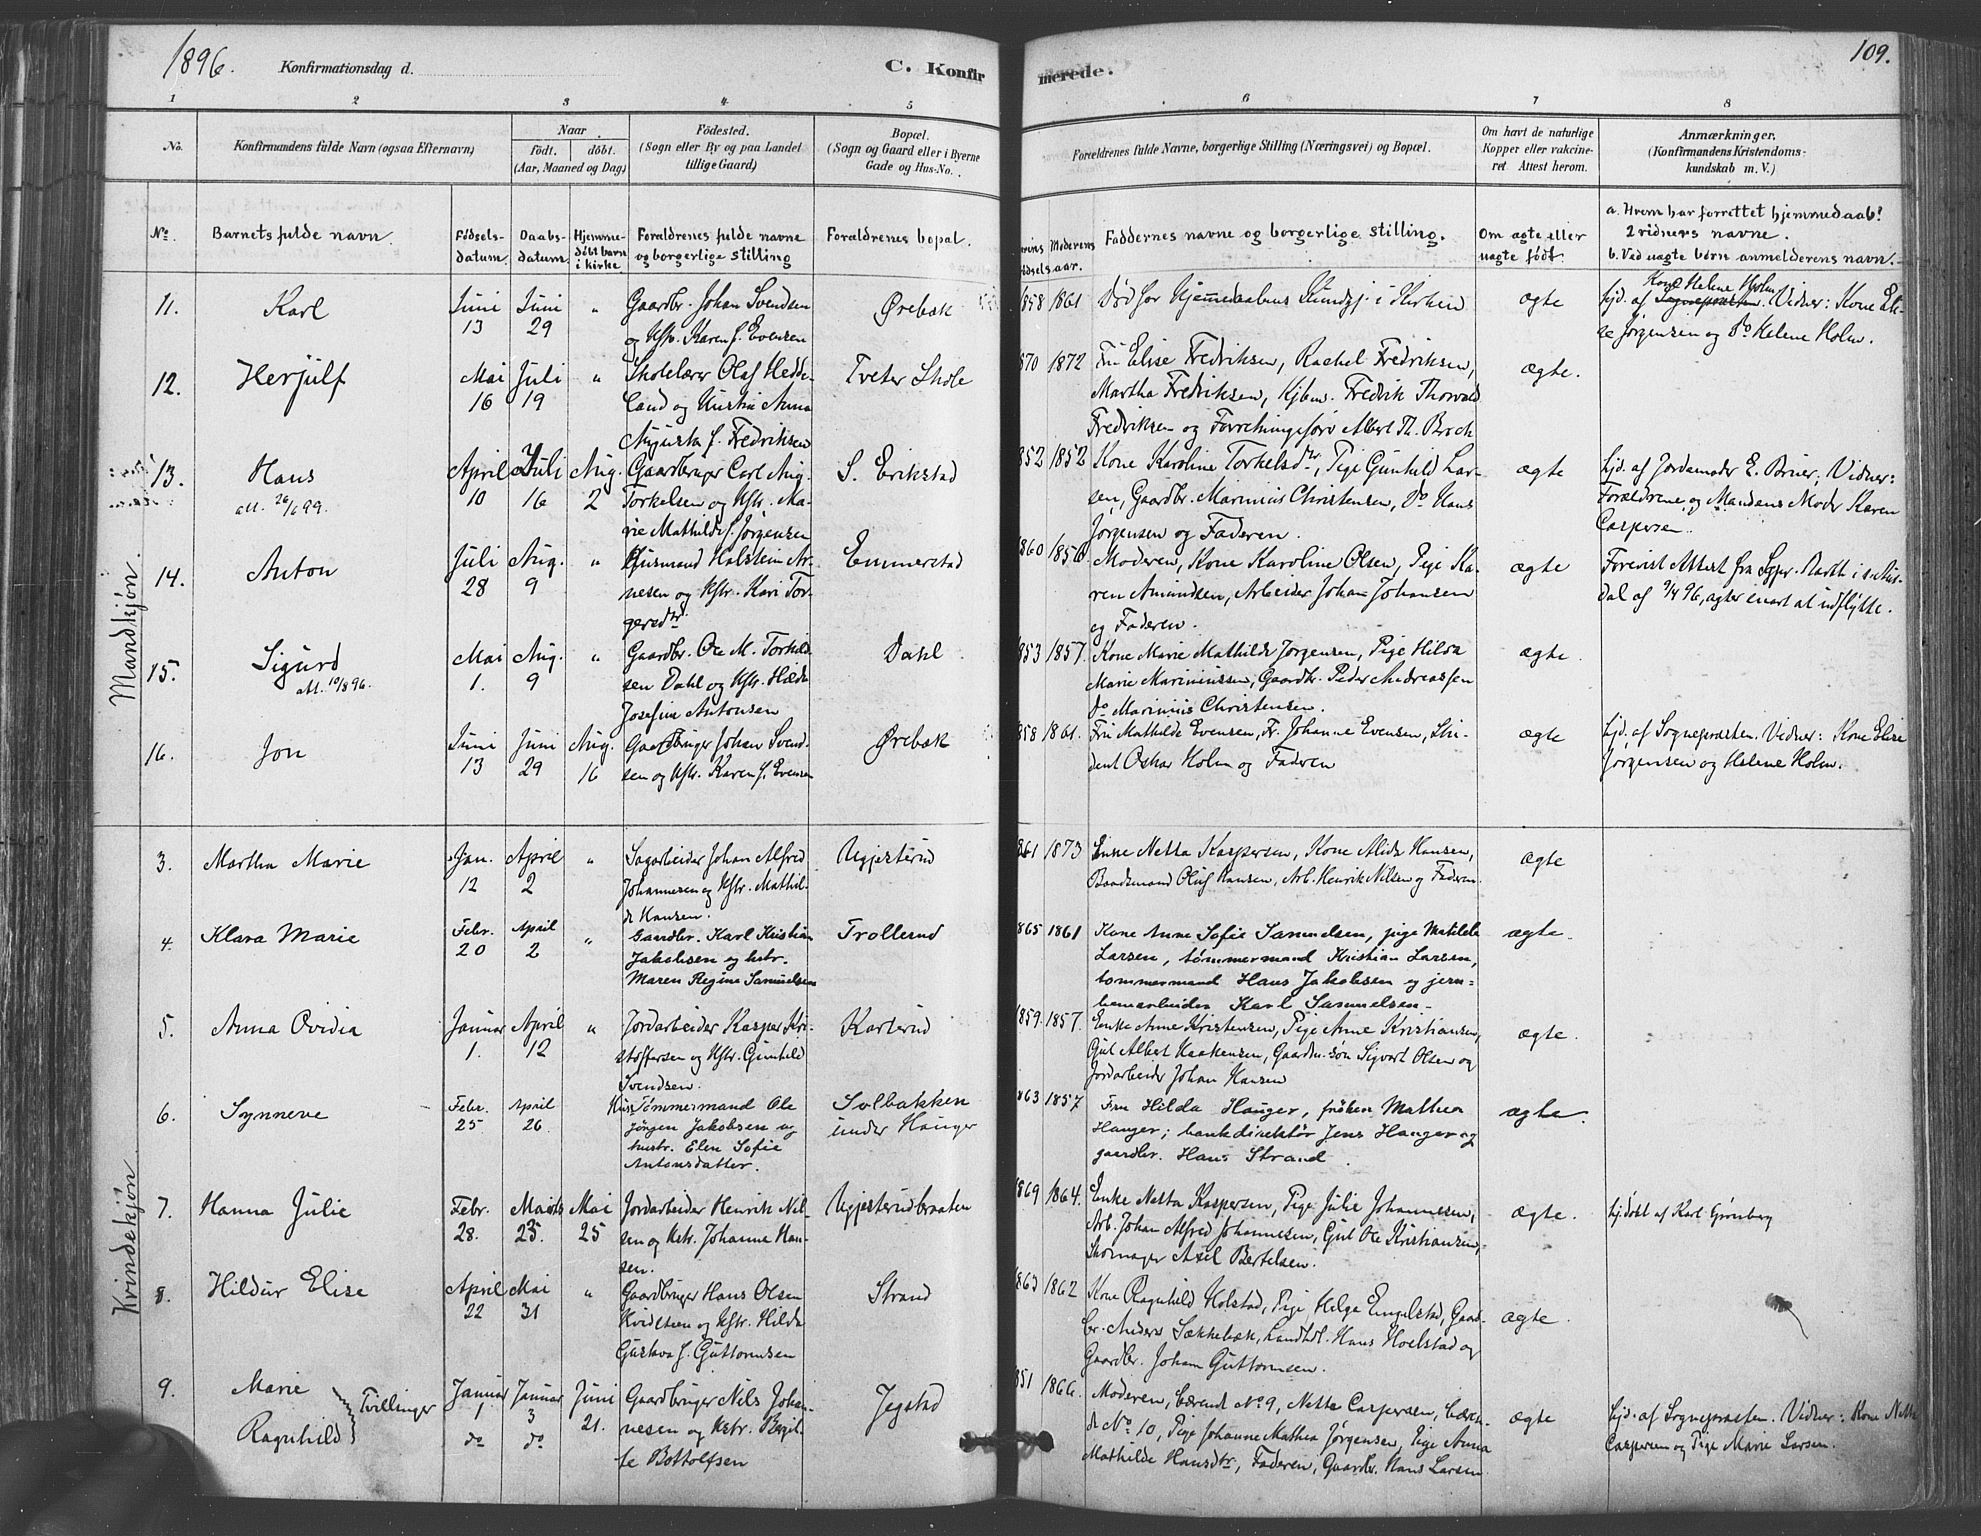 1896. Konfirmationsdag d. C. Konfir merede. 109.
1 2 3 4 5 6 7 8
No. Konfirmandens fulde Navn (ogsaa Efternavn)
Naar
født. døbt.
(Aar, Maaned og Dag)
Fødested.
(Sogn eller By og paa Landet
tillige Gaard)
Bopæl.
(Sogn og Gaard eller i Byerne
Gade og Hus-No.
Forældrenes fulde Navne, borgerlige Stilling (Næringsvei) og Bopæl.
Om havt de naturlige
Kopper eller vakcine-
ret Attest herom.
Anmærkninger.
(Konfirmandens Kristendoms-
kundskab m. V.)
No. Barnets fulde navn.
Fødsels-
datum.
Daabs-
datum.
Hjemme-
døbt barn
i kirke
Forældrenes fulde navne
og borgerlige stilling
Forældrenes bopæl.
Moderens
aar.
Faddernes navne og borgerlige stilling.
Om ægte eller
uægte født.
a. Hvem har forrettet hjemmedaab?
2 vidners navne.
b. Ved uægte børn anmelderens navn.
Mandkjøn.
11. Karl
Juni 13
Juni 29
"
Gaardbr. Johan Svendsen
og Hstr. Karen f. Evensen
Ørebæk
1858 1861
Død før Hjemmedaabens Stadfj. i Kirken
ægte
Kone Helene Holm
hjd. af Sognepræsten. Vidner: Kone Eli-
se Jørgensen og do Helene Holm.
12. Herjulf
Mai 16
Juli 19
"
Skolelærer Olaf Hedde-
land og Hustru Anna
Augusta f. Fredriksen
Tveter Skole
1870 1872
Fru Elise Fredriksen, Rachel Fredriksen,
Martha Fredriksen, Kjbm. Fredrik Thorvald
Fredriksen og Forretningsfører Albert Th. Broch
ægte.
13. Hans
att. 26/6 99.
April 10
Juli 16
Aug. 2
Gaardbruger Carl Aug.
Torkelsen og Hstr. Ma-
rie Mathilde f. Jørgensen
S. Erikstad
1852 1852
Kone Karoline Torkelsdtr, Pige Gunhild Lar-
sen, Gaardbr. Marinius Christensen, Do Hans
Jørgensen og Faderen.
ægte
hjd. af Jordemoder E. Bruer, Vidner:
Forældrene og Mandens Moder Karen
Caspersen.
14. Anton
Juli 28
Aug. 9
"
Husmand Halstein Ar-
nesen og Hstr. Kari Tor-
gersdtr.
Emmerstad
1860 1856
Moderen, Kone Karoline Olsen, Pige Ka-
ren Amundsen, Arbeider Johan Johansen
og Faderen.
ægte
Forevist Attest fra Sgpr. Barth i
dal af 9/4 96, agter snart at udflytte.
15. Sigurd
att. 10/8 96.
Mai 1.
Aug. 9
"
Gaardbr. Ole M. Torkild-
sen Dahl og Hstr. Hilda
Josefine Antonsen
Dahl
1853 1857.
Kone Marie Mathilde Jørgensen, Pige Hilda
Marie Mariniussen, Gaardbr. Peder Andreassen
do Marinius Christensen.
ægte.
16. Jon
Juni 13
Juni 29
Aug. 16
Gaardbruger Johan Svend-
sen og Hstr. Karen f. Evensen
Ørebæk
1858 1861.
Fru Mathilde Evensen, Fr. Johanne Evensen, Stu-
dent Oskar Holm og Faderen
ægte
hjd. af Sognepræsten. Vidner: Kone Elise
Jørgensen og Helene Holm.
Kvindekjøn.
3. Martha Marie
Jan. 12
April 2
"
Sagarbeider Johan Alfred
Johannesen og Hstr. Mathil-
de Hansen.
Ugjesterud
1861 1873
Enke Netta Kaspersen, Kone Alida Hansen,
Baadsmand Oluf Hansen, Arb. Henrik Nilsen og Faderen.
ægte
4. Klara Marie
Febr. 20
April 2
"
Gaardbr. Karl Kristian
Jakobsen og hstr.
Maren Regine Samuelsen
Trollerud
1865 1861
Kone Anne Sofie Samuelsen, pige Matilde
Larsen, tømmermand Kristian Larsen,
tømmermand Hans Jakobsen og jern-
banearbeider Karl Samuelsen.
ægte.
5. Anna Ovidia
Januar 1.
April 12
"
Jordarbeider Kasper Kri-
stoffersen og Hstr. Gunhild
Svendsen.
Karterud
1859. 1857.
Enke Anne Kristensen, Pige Anne Kristiansen,
Gut Albert Haakensen, Gaardm.søn Sigvart Olsen og
Jordarbeider Johan Hansen
ægte.
6. Synneve
Febr. 25
April 26
Tømmermand Ole
Jørgen Jakobsen og
hustr. Elen Sofie
Antonsdatter.
Solbakken
under Hauger
1863 1857
Fru Hilda Hauger, frøken Mathea
Hauger, bankdirektør Jens Hauger og
gaardbr. Hans Strand.
ægte.
7. Hanna Julie
Febr. 28.
Marts 25.
Mai 25
Jordarbeider Henrik Nil-
sen og Hstr. Johanne Han-
sen.
Ugjesterudbraaten
1869 1864.
Enke Netta Kaspersen, Pige Julie Johannesen,
Arb. Johan Alfred Johannesen, Gut Ole Kristiansen,
Skomager Axel Bertelsen.
ægte.
hj.døbt af Karl Grønberg
8. Hildur Elise
April 22
Mai 31
"
Gaardbruger Hans Olsen
Kvidsteen og Hstr. Hilda
Gustava f. Guttormsen
Strand
1863 1862
Kone Ragnhild Holstad, Pige Helga Engelstad, Gaard-
br. Anders Sækkebæk, Landhdl. Hans Hoelstad og
Gaardbr. Johan Guttormsen.
ægte.
9. Marie
Ragnhild
Tvillinger
Januar 1
do
Januar 3
do
Juni 21.
Gaardbruger Nils Johan-
nesen og Hstr. Bergit-
te Bottolfsen
Jegstad
1851 1866.
Moderen, bærende No 9, Netta Caspersen, bæren-
de No 10, Pige Johanne Mathea Jørgensen, Pige Anna
Mathilde Hansdtr, Faderen, Gaardbr. Hans Larsen
ægte
hjd. af Sognepræsten. Vidner: Kone Netta
Caspersen og Pige Marie Larsen.